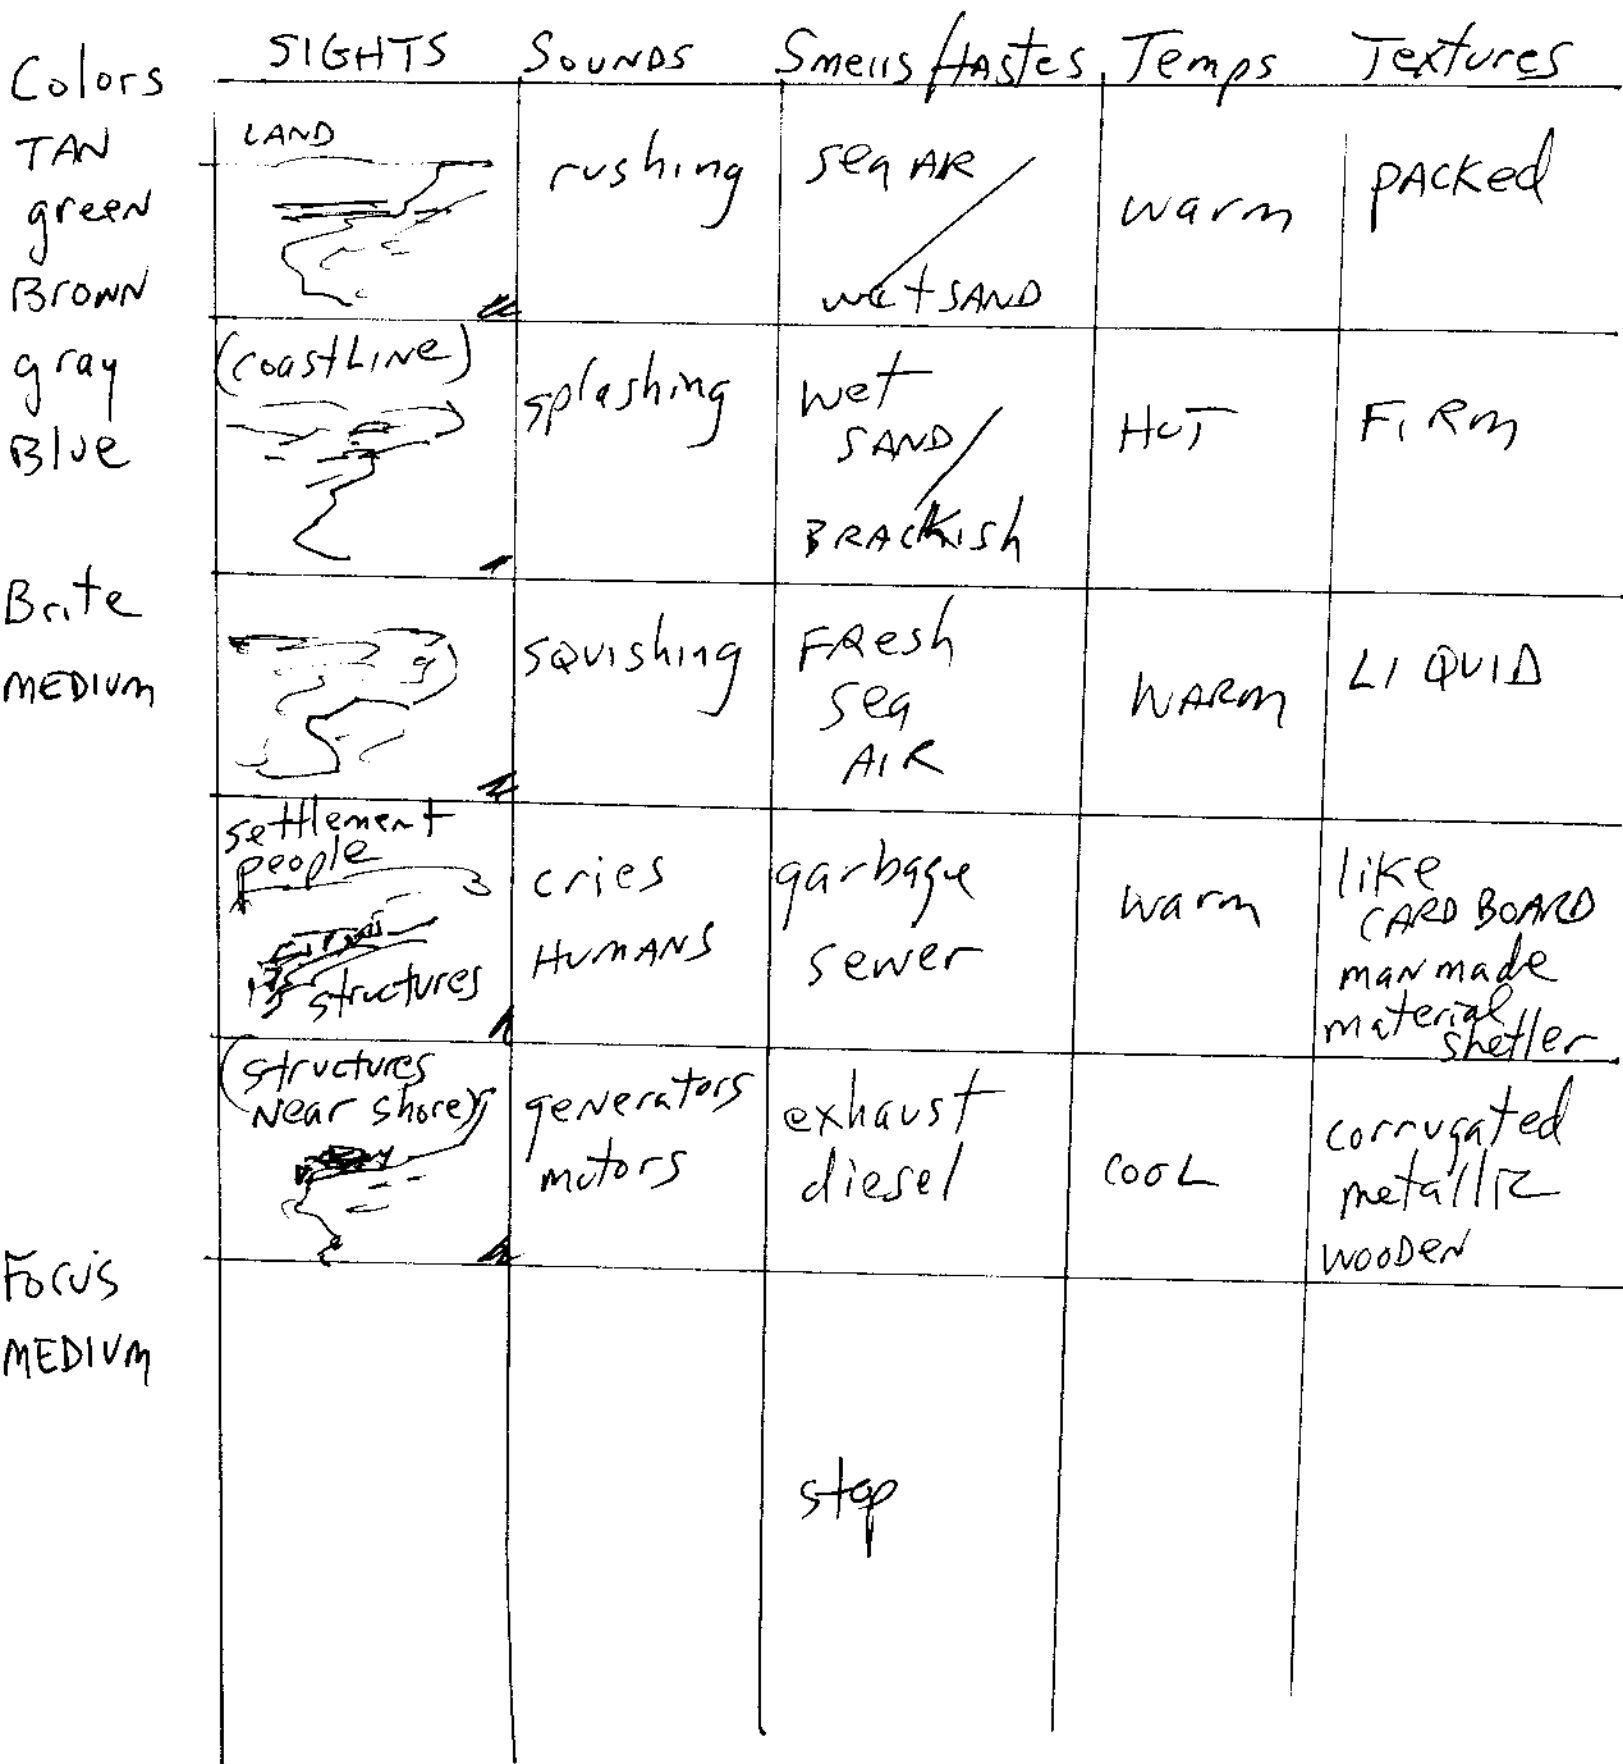 Colors
SIGHTS
SOUNDS
Smells/tastes
Temps
Textures
TAN
green
BROWN
gray
Blue
Brite
MEDIUM
Focus
MEDIUM
LAND
rushing
sea AIR
wet SAND
warm
PACKed
(coastLiNe)
splashing
wet
SAND/
BRACKISh
HOT
FIRM
SQUIShing
FResh
sea
AIR
WARM
LIQUID
settlement
people
structures
cries
HUMANS
garbage
sewer
warm
like
CARD BOARD
man made
material
shetler
(structures
Near shore)
generators
motors
exhaust
diesel
COOL
corrugated
metallic
WOODEN
stop